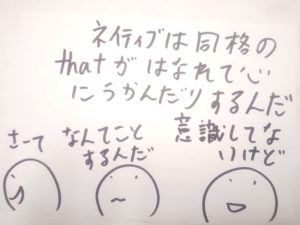 ネイティブは同格の
thatがはなれて心
にうかんだりするんだ
さーて
なんてこと
するんだ
意識してな
いけど